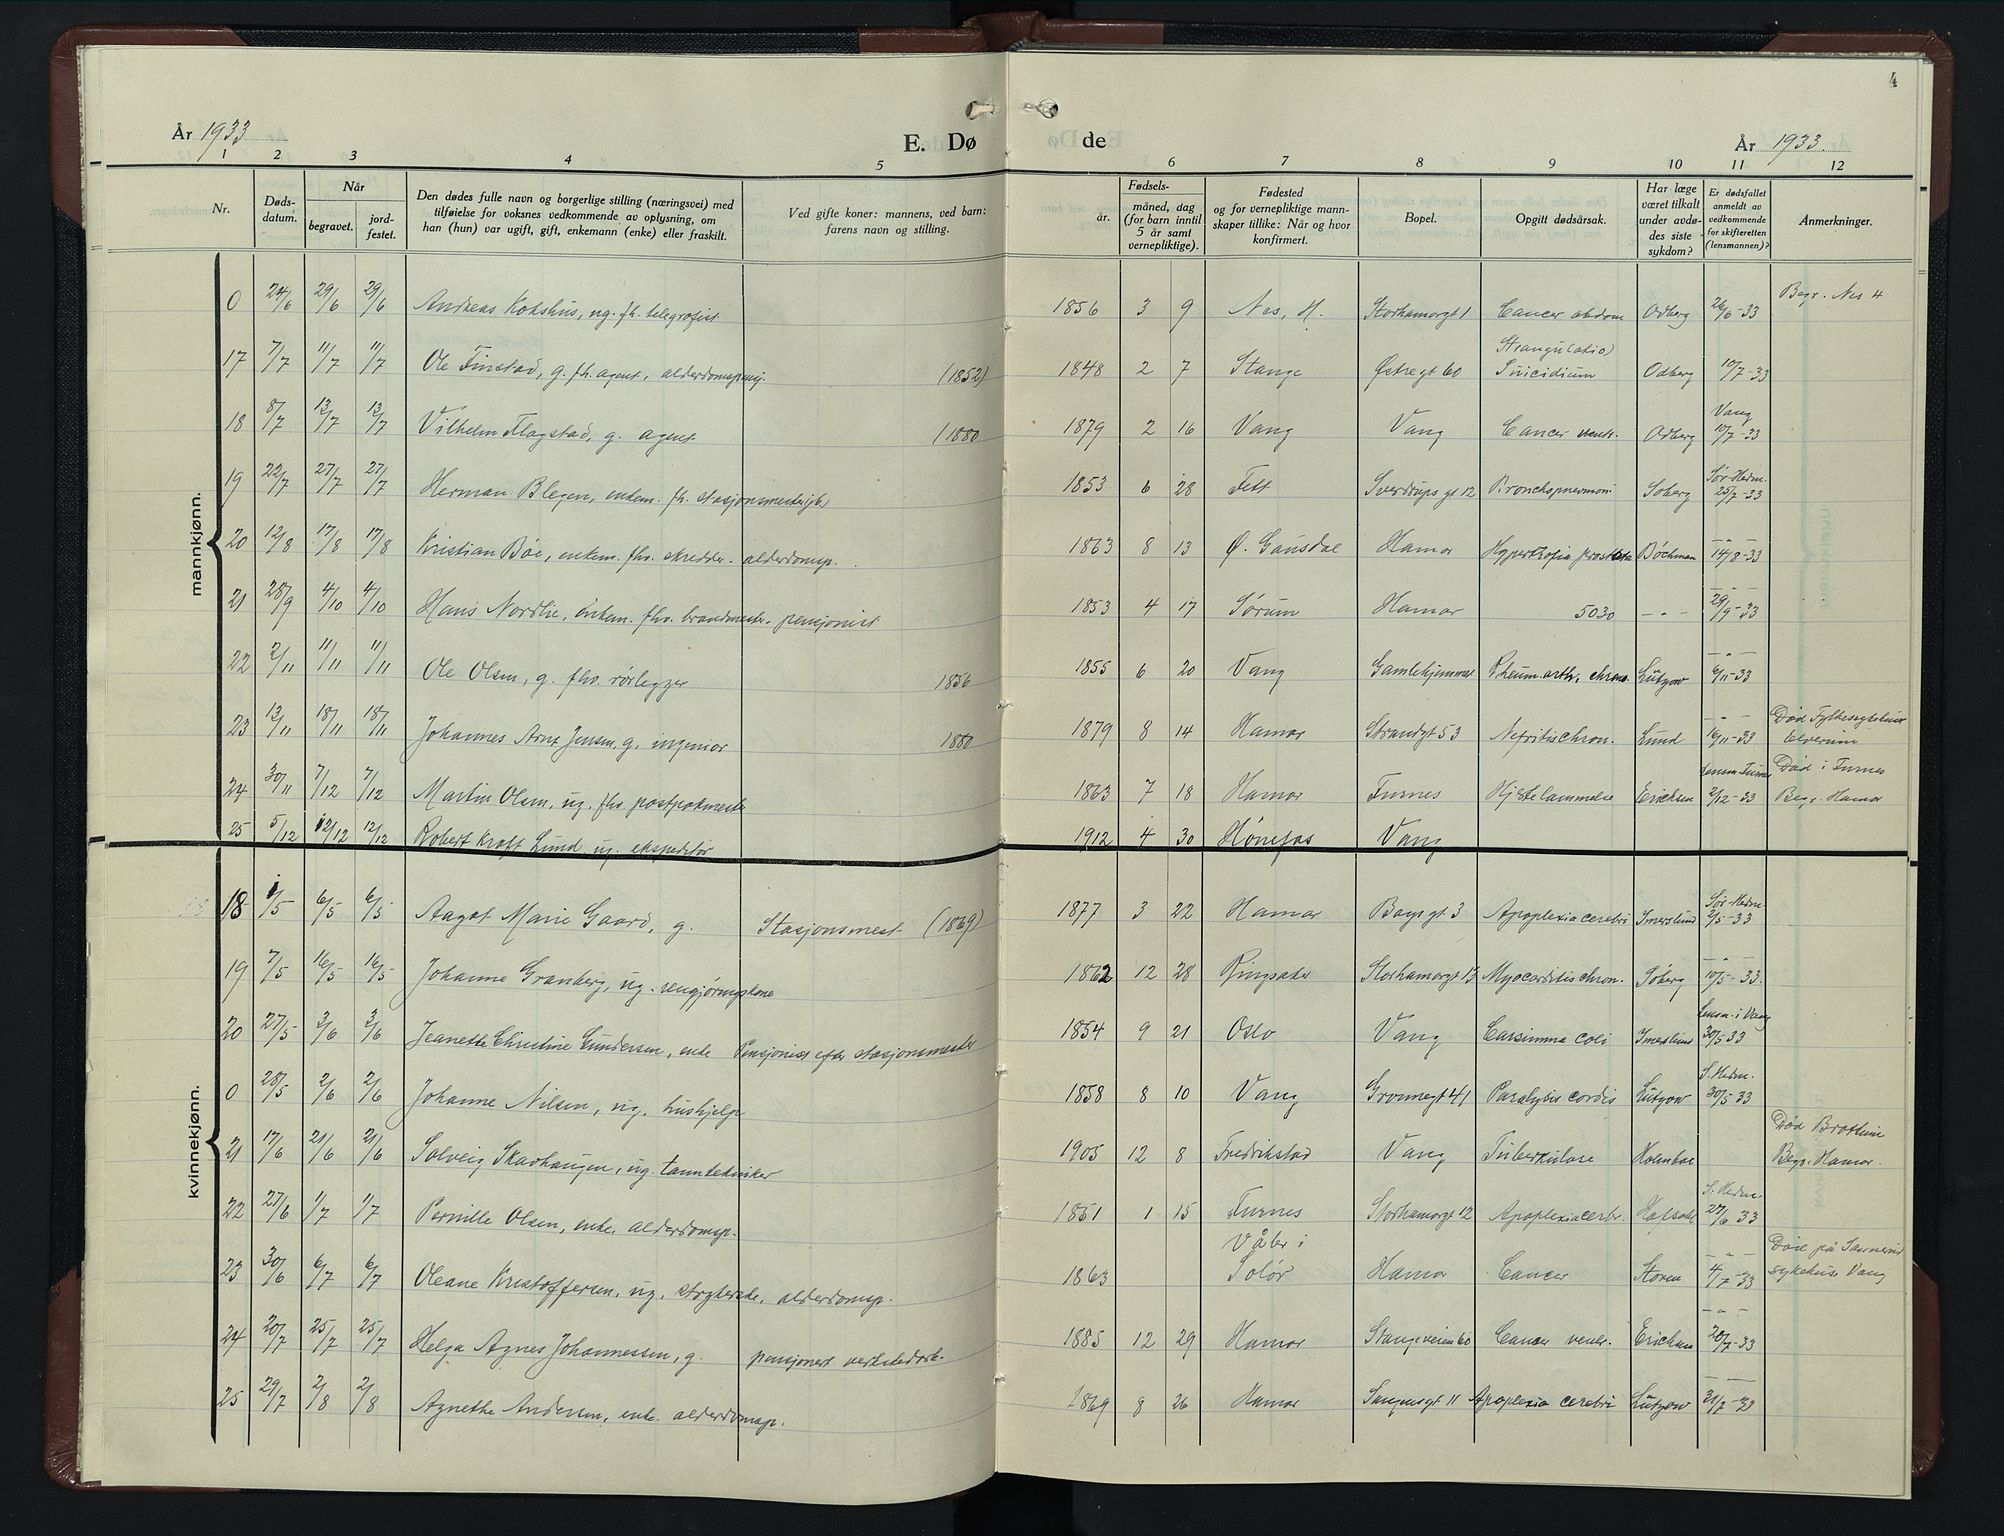 4
År 1933
E. Dø
de
År 1933.
1 2 3 4 5 6 7 8 9 10 11 12
Nr.
Døds-
datum.
Når
begravet.
jord-
festet.
Den dødes fulle navn og borgerlige stilling (næringsvei) med
tilføielse for voksnes vedkommende av oplysning, om
han (hun) var ugift, gift, enkemann (enke) eller fraskilt.
Ved gifte koner: mannens, ved barn:
farens navn og stilling.
år.
Fødsels-
måned, dag
(for barn inntil
5 år samt
vernepliktige).
Fødested
og for vernepliktige mann-
skaper tillike: Når og hvor
konfirmert.
Bopel.
Opgitt dødsårsak.
Har læge
været tilkalt
under avdø-
des siste
sykdom?
Er dødsfallet
anmeldt av
vedkommende
for skifteretten
(lensmannen)?
Anmerkninger.
mankjønn.
0 24/6 29/6 29/6 Andreas Kokshus, ug. fh. telegrafist 1856 3 9 Nes, H. Storhamargt 1 Cancer abdom Odberg 26/6-33 Begr. Nes 4
17 7/7 11/7 11/7 Ole Finstad, g. fh. agent, alderdomspensj. (1852) 1848 2 7 Stange Østregt 60 Strangulatio Suicidium Odberg 10/7-33
18 8/7 13/7 13/7 Vilhelm Flagstad, g. agent (1880 1879 2 16 Vang Vang Cancer ventr. Odberg Vang 10/7-33
19 22/7 27/7 27/7 Herman Blegen, enkem. fh. stasjonsmester 1853 6 28 Fett Sverdrups gt 12 Bronchopneumoni Soberg Sør-Hedm. 25/7-33
20 12/8 17/8 17/8 Kristian Bøe, enkem. fhv. skredder. alderdomsp. 1863 8 13 Ø. Gausdal Hamar Hypertrofia prostata Bøchman -"- 14/8-33
21 28/9 4/10 4/10 Hans Nordlie, enkem. fhv. brandmester, pensjonist 1853 4 17 Sørum Hamar 5030 -"- -"- 29/9-33
22 2/11 11/11 11/11 Ole Olsen, g. fhv. rørlegger 1856 1855 6 20 Vang Gamlehjemmet Rheum. arth. chron. Lützow -"- 6/11-33
23 13/11 18/11 18/11 Johannes Arnt Jensen, g. ingeniør 1880 1879 8 14 Hamar Strandgt 53 Nefritis chron. Lund -"- 16/11-33 Død Fylkessykehuset Elverum
24 30/11 7/12 7/12 Martin Olsen, ug. fhv. postpakmester 1863 7 18 Hamar Furnes Hjertelammelse Erichsen Lensm. Furnes 2/12-33 Død i Furnes Begr. Hamar
25 5/12 12/12 12/12 Robert Kraft Lund, ug. ekspeditør 1912 4 30 Hønefos Vang
kvinnekjønn.
18 1/5 6/5 6/5 Aagot Marie Gaard, g. Stasjonsmest. (1869) 1877 3 22 Hamar Bays gt 3 Apoplexia cerebri Imerslund Sør-Hedm. 2/5-33
19 7/5 16/5 16/5 Johanne Granberg, ug. rengjøringskone 1862 12 28 Ringsaker Storhamargt 13 Myocarditis chron. Soberg -"- 10/5-33.
20 27/5 3/6 3/6 Jeanette Christine Gundersen, enke Pensjonist efter stasjonsmester 1854 9 21 Oslo Vang Carsinoma coli Imerslund Lensm. i Vang 30/5 33
0 28/5 2/6 2/6 Johanne Nilsen, ug. hushjelp 1858 8 10 Vang Grønnegt 41 Paralysis cordis Lützow S. Hedm. 30/5 33
21 17/6 21/6 21/6 Solveig Skavhaugen, ug. tanntekniker 1905 12 8 Fredrikstad Vang Tuberkulose Holmboe Død Brottum Begr. Hamar.
22 27/6 1/7 1/7 Pernille Olsen, enke, alderdomsp. 1851 1 15 Furnes Storhamargt 12 Apoplexia cerbr. Hafsahl S. Hedm. 27/6 33
23 30/6 6/7 6/7 Oleane Kristoffersen, ug, strykerske, alderdomsp. 1863 Våler i Solør Hamar Cancer Storen -"- 4/7-33 Død på Sanneruds sykehus Vang
24 20/7 25/7 25/7 Helga Agnes Johannessen, g. pensjonert verkstedarb. 1885 12 29 Hamar Stangeveien 60 Cancer ventr. Erichsen -"- 20/7-33
25 29/7 2/8 2/8 Agnethe Andersen, enke. alderdomsp. 1869 8 26 Hamar gt 11 Apoplexia cerebri Lützow 31/7-33